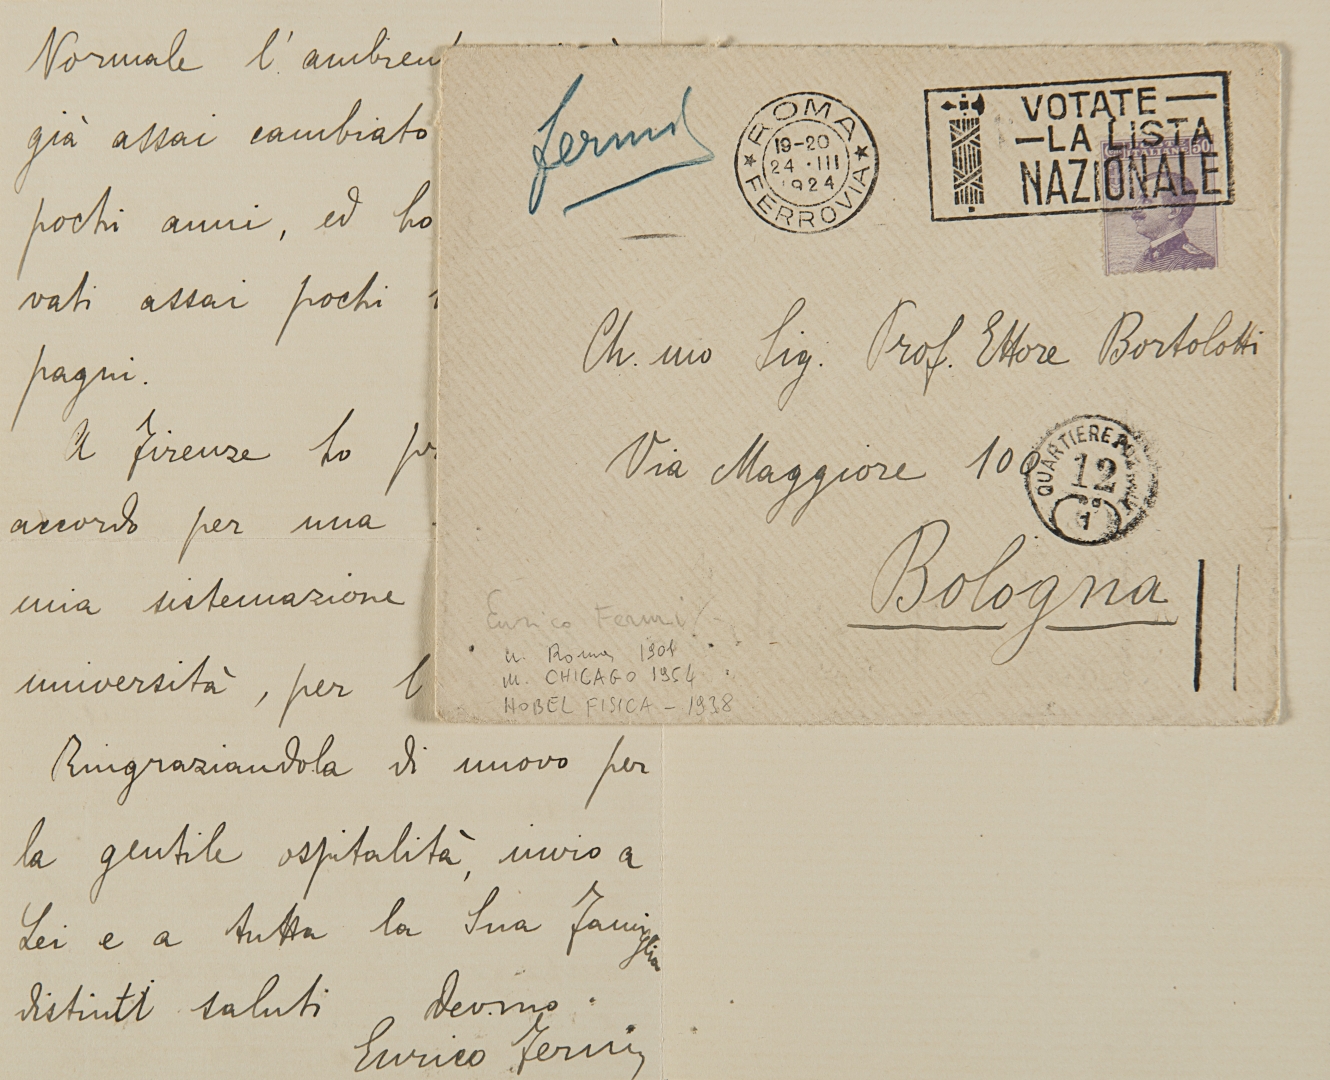 Normale l'ambien
già assai cambiato
pochi anni, ed ho
vati assai pochi
pagni.
A Firenze ho
accordo per una
mia sistemazione
università, per l
Ringraziandola di nuovo per
la gentile ospitalità, invio a
Lei e a tutta la Sua Famiglia
distinti saluti dev.mo
Enrico Fermi
Fermi
ROMA
19-20
24 ·III
1924
FERROVIA
VOTATE
LA LISTA
NAZIONALE
50
Ch.mo Sig. Prof. Ettore Bortolotti
Via Maggiore 100
QUARTIERE
12
Bologna
Enrico Fermi
n. Roma 1901
m. CHICAGO 1954
NOBEL FISICA - 1938